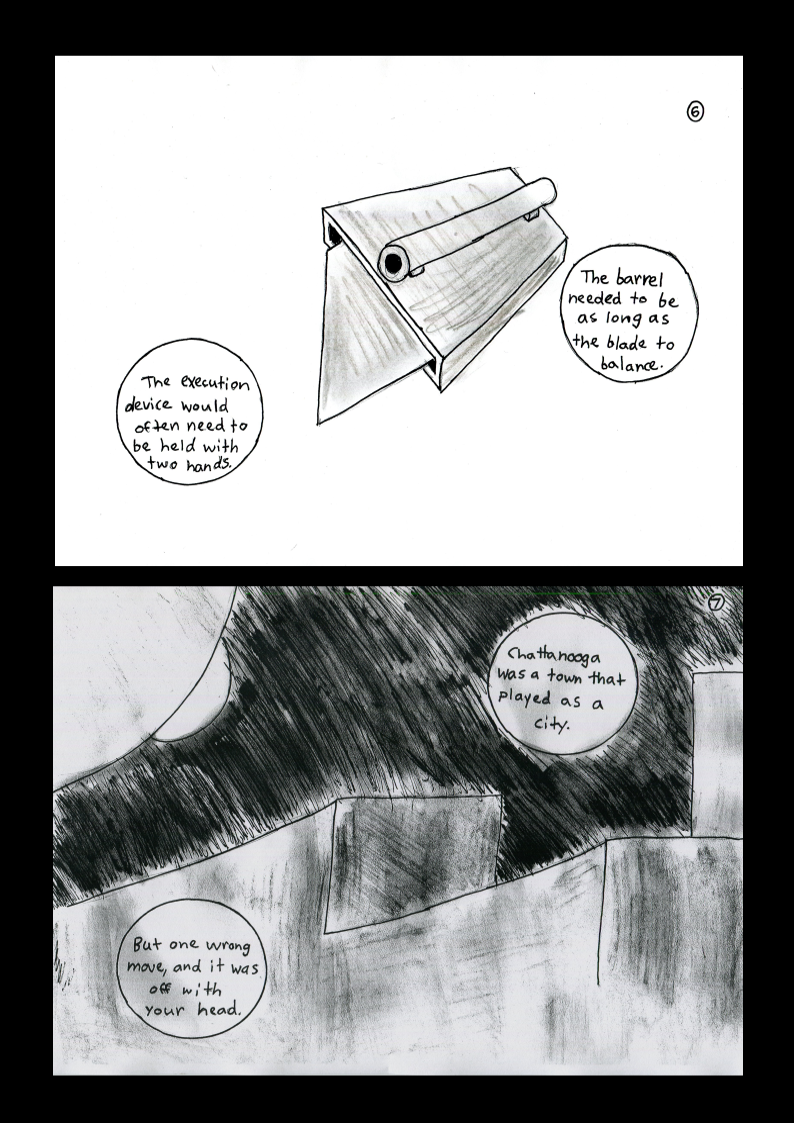 6
The barrel
needed to be
as long as
the blade to
balance.
The execution
device would
often need to
be held with
two hands.
7
Chattanooga
was a town that
played as a
city.
But one wrong
move, and it was
off with
your head.